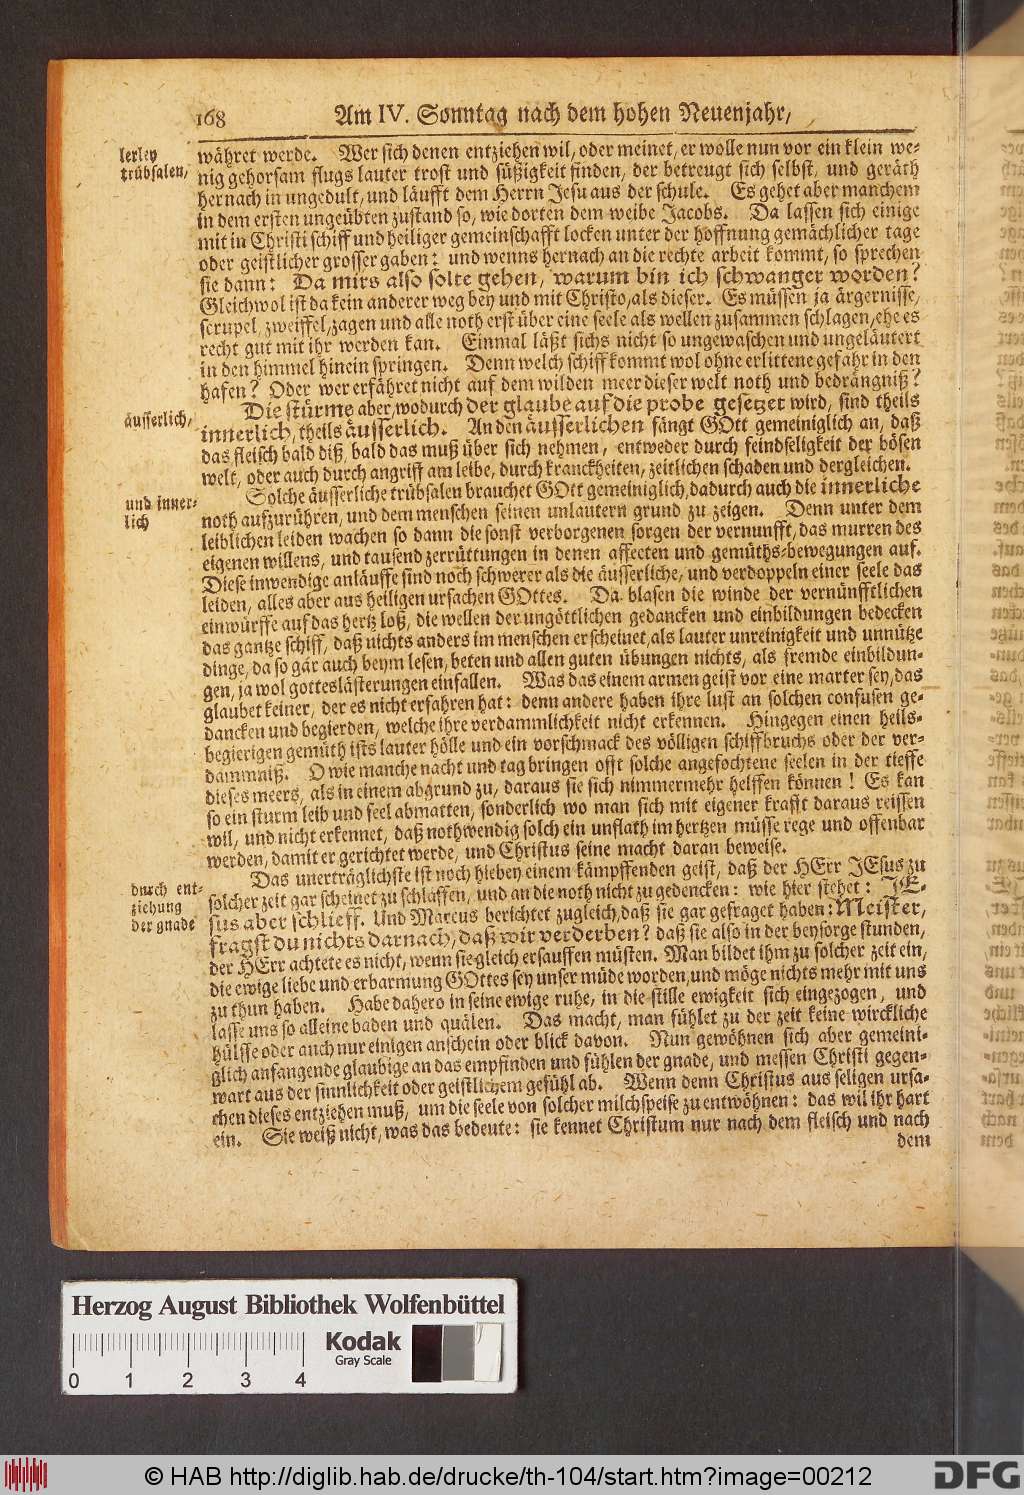 168 Am IV. Sonntag nach dem hohen Neuenjahr,
lerley
trübsalen,
währet werde. Wer sich denen entziehen wil, oder meinet, er wolle nun vor ein klein we-
nig gehorsam flugs lauter trost und süßigkeit finden, der betreugt sich selbst, und geräth
hernach in ungedult, und läufft dem Herrn Jesu aus der schule. Es gehet aber manchem
in dem ersten ungeübten zustand so, wie dorten dem weibe Jacobs. Da lassen sich einige
mit in Christi schiff und heiliger gemeinschafft locken unter der hoffnung gemächlicher tage
oder geistlicher grosser gaben: und wenns hernach an die rechte arbeit kommt, so sprechen
sie dann: Da mirs also solte gehen, warum bin ich schwanger worden?
Gleichwol ist da kein anderer weg bey und mit Christo, als dieser. Es müssen ja ärgernisse,
scrupel, zweiffel, zagen und alle noth erst über eine seele als wellen zusammen schlagen, ehe es
recht gut mit ihr werden kan. Einmal läßt sichs nicht so ungewaschen und ungeläutert
in den himmel hinein springen. Denn welch schiff kommt wol ohne erlittene gefahr in den
hafen? Oder wer erfähret nicht auf dem wilden meer dieser welt noth und bedrängniß?
äusserlich,
Die stürme aber, wodurch der glaube auf die probe gesetzet wird, sind theils
innerlich, theils äusserlich. An den äusserlichen fängt GOtt gemeiniglich an, daß
das fleisch bald diß, bald das muß über sich nehmen, entweder durch feindseligkeit der bösen
welt, oder auch durch angriff am leibe, durch kranckheiten, zeitlichen schaden und dergleichen.
und inner-
lich
Solche äusserliche trübsalen brauchet GOtt gemeiniglich, dadurch auch die innerliche
noth aufzurühren, und dem menschen seinen unlautern grund zu zeigen. Denn unter dem
leiblichen leiden wachen so dann die sonst verborgenen sorgen der vernunfft, das murren des
eigenen willens, und tausend zerrüttungen in denen affecten und gemüths-bewegungen auf.
Diese inwendige anläuffe sind noch schwerer als die äusserliche, und verdoppeln einer seele das
leiden, alles aber aus heiligen ursachen GOttes. Da blasen die winde der vernünfftlichen
einwürffe auf das hertz loß, die wellen der ungöttlichen gedancken und einbildungen bedecken
das gantze schiff, daß nichts anders im menschen erscheinet, als lauter unreinigkeit und unnütze
dinge, da so gar auch beym lesen, beten und allen guten übungen nichts, als fremde einbildun-
gen, ja wol gotteslästerungen einfallen. Was das einem armen geist vor eine marter sey, das
glaubet keiner, der es nicht erfahren hat: denn andere haben ihre lust an solchen confusen ge-
dancken und begierden, welche ihre verdammlichkeit nicht erkennen. Hingegen einen heils-
begierigen gemüth ists lauter hölle und ein vorschmack des völligen schiffbruchs oder der ver-
dammniß. O wie manche nacht und tag bringen offt solche angefochtene seelen in der tieffe
dieses meers, als in einem abgrund zu, daraus sie sich nimmermehr helffen können! Es kan
so ein sturm leib und seel abmatten, sonderlich wo man sich mit eigener krafft daraus reissen
wil, und nicht erkennet, daß nothwendig solch ein unflath im hertzen müsse rege und offenbar
werden, damit er gerichtet werde, und Christus seine macht daran beweise.
durch ent-
ziehung
der gnade
Das unerträglichste ist noch hiebey einem kämpffenden geist, daß der HErr JEsus zu
solcher zeit gar scheinet zu schlaffen, und an die noth nicht zu gedencken: wie hier stehet: JE-
sus aber schlieff. Und Marcus berichtet zugleich, daß sie gar gefraget haben: Meister,
fragst du nichts darnach, daß wir verderben? daß sie also in der beysorge stunden,
der HErr achtete es nicht, wenn sie gleich ersauffen müsten. Man bildet ihm zu solcher zeit ein,
die ewige liebe und erbarmung GOttes sey unser müde worden, und möge nichts mehr mit uns
zu thun haben. Habe dahero in seine ewige ruhe, in die stille ewigkeit sich eingezogen, und
lasse uns so alleine baden und quälen. Das macht, man fühlet zu der zeit keine wirckliche
hülffe oder auch nur einigen anschein oder blick davon. Nun gewöhnen sich aber gemeini-
glich anfangende glaubige an das empfinden und fühlen der gnade, und messen Christi gegen-
wart aus der sinnlichkeit oder geistlichem gefühl ab. Wenn denn Christus aus seligen ursa-
chen dieses entziehen muß, um die seele von solcher milchspeise zu entwöhnen: das wil ihr hart
ein. Sie weiß nicht, was das bedeute: sie kennet Christum nur nach dem fleisch und nach
dem
Herzog August Bibliothek Wolfenbüttel
Kodak
Gray Scale
0 1 2 3 4
© HAB http://diglib.hab.de/drucke/th-104/start.htm?image=00212
DFG